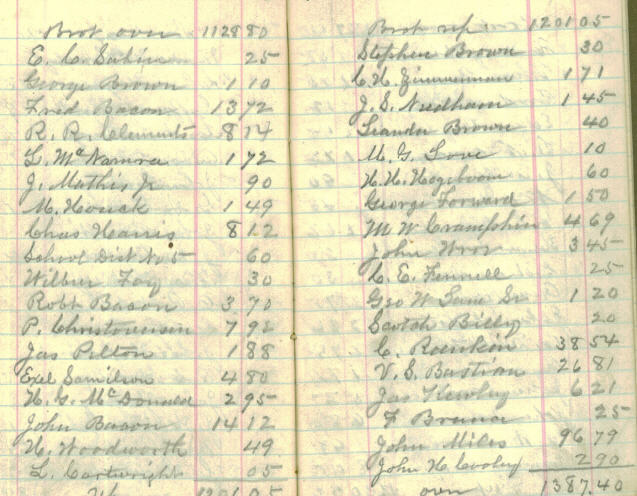 Brot over 1128 80
E. C. Sabin 25
George Brown 1 10
Fred Bacon 13 72
R. R. Clements 8 14
L. McNamra 1 72
J. Mathis Jr 90
M. Houck 1 49
Chas Harris 8 12
School Dist No 5 60
Wilbur Foy 30
Robt Bacon 3 70
P. Christownsin 7 92
Jas Pelton 1 88
Exel Samilson 4 80
H. G. McDonald 2 95
John Bacon 14 12
H. Woodworth 49
L. Cartwright 05
1201 05
Brot up 1201 05
Stephen Brown 30
C. H. Zimmerman 1 71
J. S. Needham 1 45
Leander Brown 40
M. G. Love 10
H. H. Hogeboom 60
George Forward 1 50
M W Cramphin 4 69
John 3 45
C. E. Fennell 25
Geo W Sr 1 20
Scotch Billy 20
C. 38 54
V. S. Bastian 26 81
Jas 6 21
F 25
John Miles 96 79
John H Cooley 2 90
over 1387.40